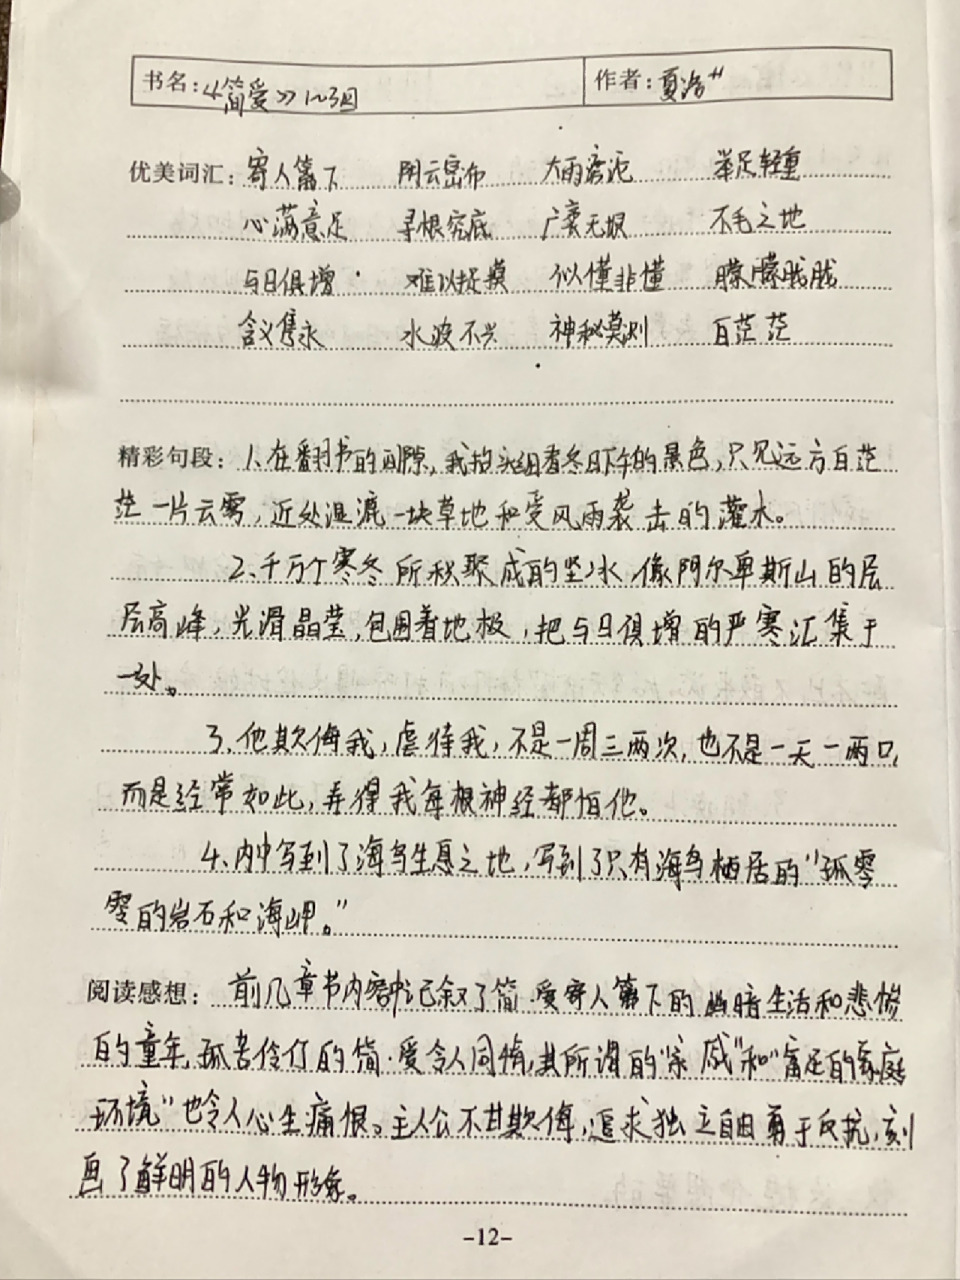 书名:《简爱》1~3回 作者:夏洛蒂
优美词汇: 寄人篱下 阴云密布 大雨滂沱 举足轻重
心满意足 寻根究底 广袤无垠 不毛之地
与日俱增 难以捉摸 似懂非懂 朦朦胧胧
含义隽永 水波不兴 神秘莫测 白茫茫
精彩句段: 1、在翻书的间隙,我抬头细看冬日下午的景色,只见远方白茫
茫一片云雾,近处湿漉一块草地和受风雨袭击的灌木。
2、千万个寒冬所积聚成的坚冰,像阿尔卑斯山的层
层高峰,光滑晶莹,包围着地极,把与日俱增的严寒汇集于
一处。
3、他欺侮我,虐待我,不是一周三两次,也不是一天一两回,
而是经常如此,弄得我每根神经都怕他。
4、内中写到了海鸟生息之地,写到了只有海鸟栖居的"孤零
零的岩石和海岬。"
阅读感想: 前几章书内容中记叙了简·爱寄人篱下的幽暗生活和悲惨
的童年,孤苦伶仃的简·爱令人同情,其所谓的"亲戚"和"富足的家庭
环境"也令人心生痛恨。主人公不甘欺侮,追求独立自由勇于反抗,刻
画了鲜明的人物形象。
-12-